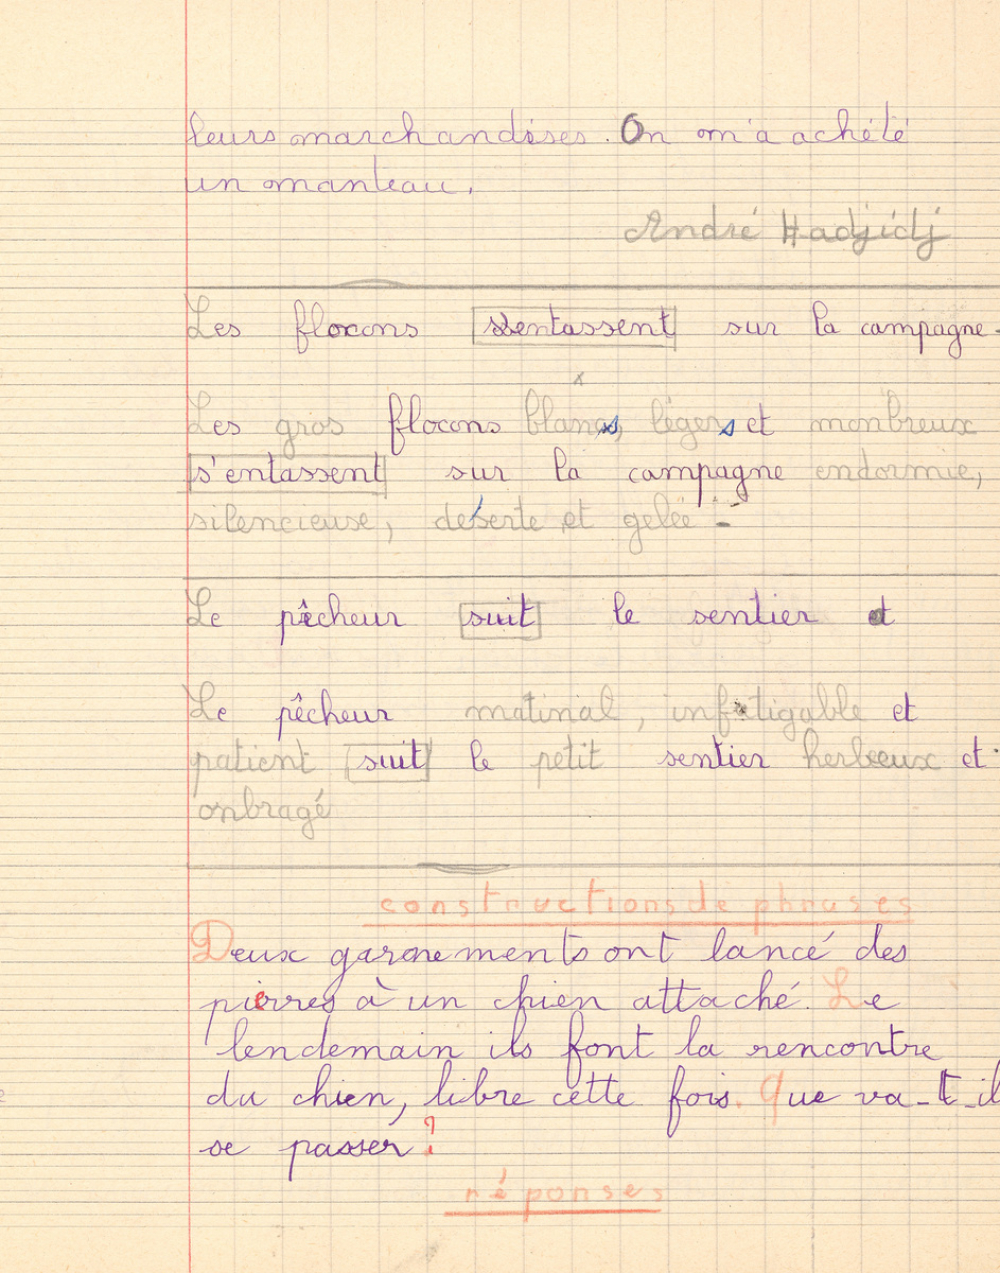 leurs marchandises. On m'a achété
un manteau.
André Hadjidj
Les flocons s'entassent sur la campagne.
Les gros flocons blancs, légers et monbreux
s'entassent sur la campagne endormie,
silencieuse, déserte et gelée.
Le pêcheur suit le sentier et
Le pêcheur matinal, infatigable et
patient suit le petit sentier herbeux et
onbragé
constructions de phrases
Deux garnements ont lancé des
pierres à un chien attaché. Le
lendemain ils font la rencontre
du chien, libre cette fois. Que va-t-il
se passer?
réponses